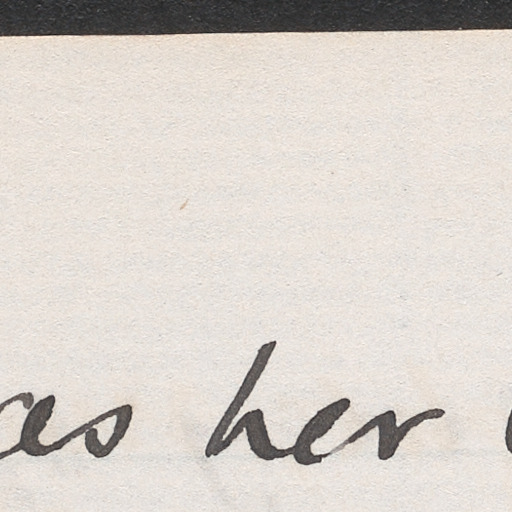 as her